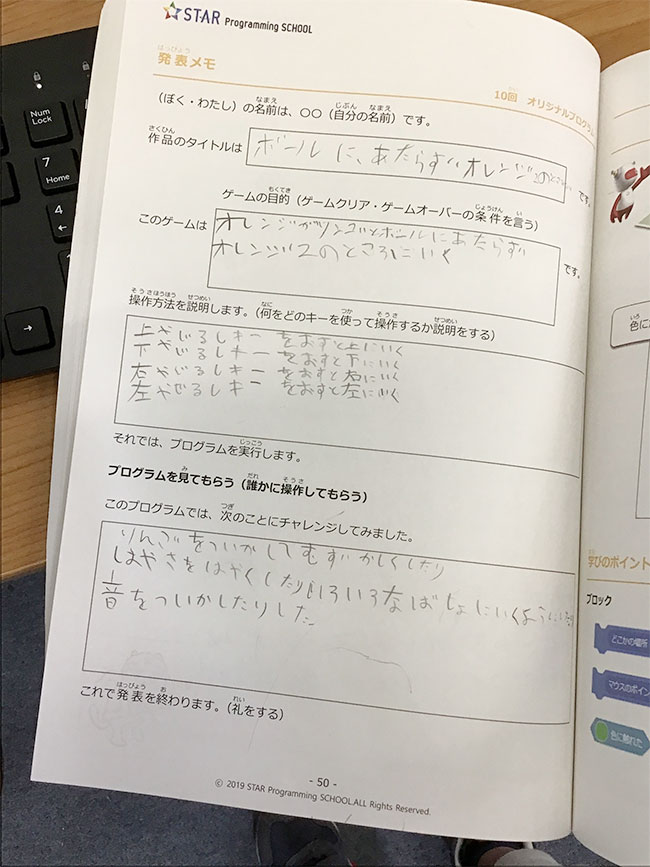 STAR Programming SCHOOL
発表メモ
10回 オリジナルプログラ
(ぼく・わたし)の名前は、○○(自分の名前)です。
作品のタイトルは ボールに、あたらずオレンジ です。
ゲームの目的(ゲームクリア・ゲームオーバーの条件を言う)
このゲームは オレンジがリンゴとボールにあたらず です。
オレンジ2のところにいく
操作方法を説明します。(何をどのキーを使って操作するか説明をする)
上やじるしキーをおすと上にいく
下やじるしキーをおすと下にいく
右やじるしキーをおすと右にいく
左やじるしキーをおすと左にいく
それでは、プログラムを実行します。
プログラムを見てもらう(誰かに操作してもらう)
このプログラムでは、次のことにチャレンジしてみました。
りんごをついかしてむずかしくしたり
はやさをはやくしたりいろいろなばしょにいくように
音をついかしたりした
これで発表を終わります。(礼をする)
- 50 -
© 2019 STAR Programming SCHOOL.ALL Rights Reserved.
Num Lock
7
Home
4
色に
学びのポイント
ブロック
どこかの場所
マウスのポイン
色に触れた